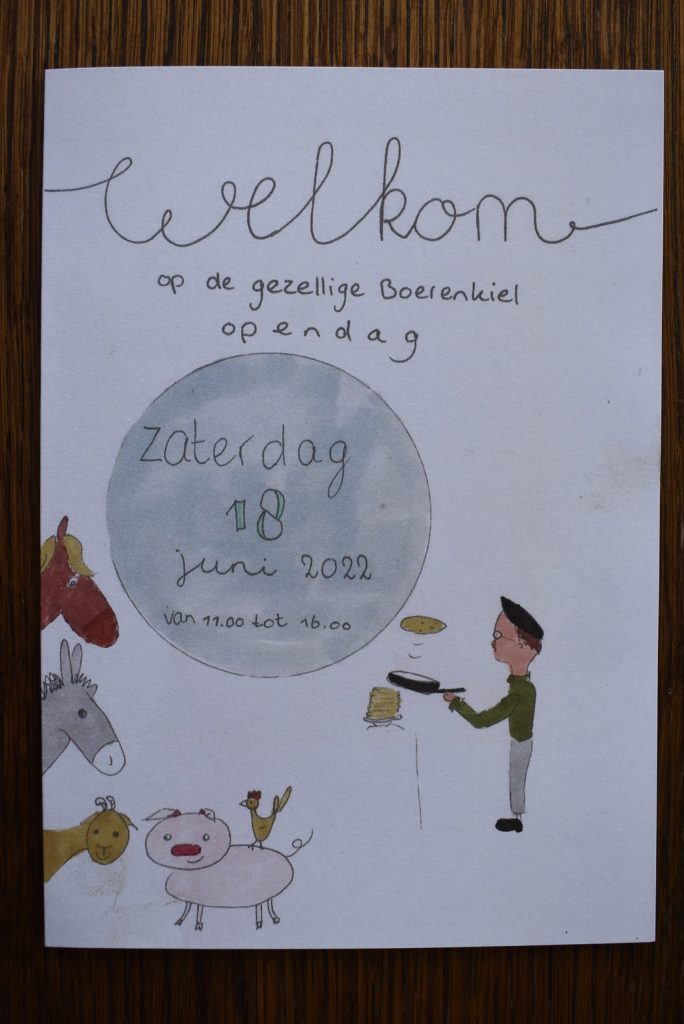 Welkom
op de gezellige Boerenkiel
opendag
Zaterdag
18
juni 2022
van 11.00 tot 16.00